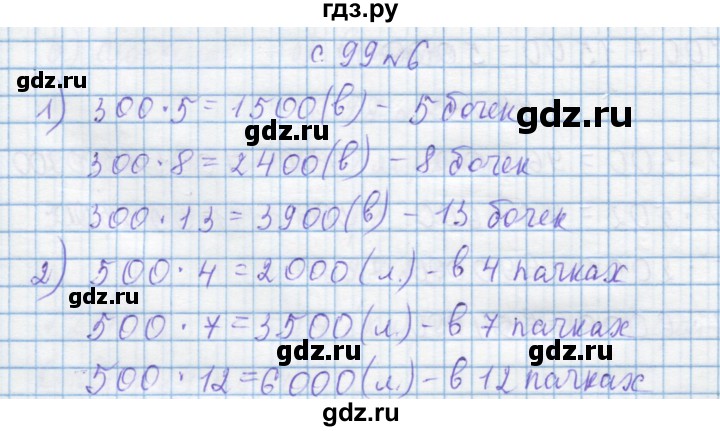 гдз.ру
gdz.ru
с. 99 №6
gdz.ru
1) 300·5=1500(в) - 5 бочек
gdz.ru
gdz.ru
300·8=2400(в) - 8 бочек
300·13=3900(в) - 13 бочек
2) 500·4=2000(л.) - в 4 пачках
gdz.ru
gdz.ru
500·7=3500(л.) - в 7 пачках
gdz.ru
gdz.ru
500·12=6000(л.) - в 12 пачках
gdz.ru